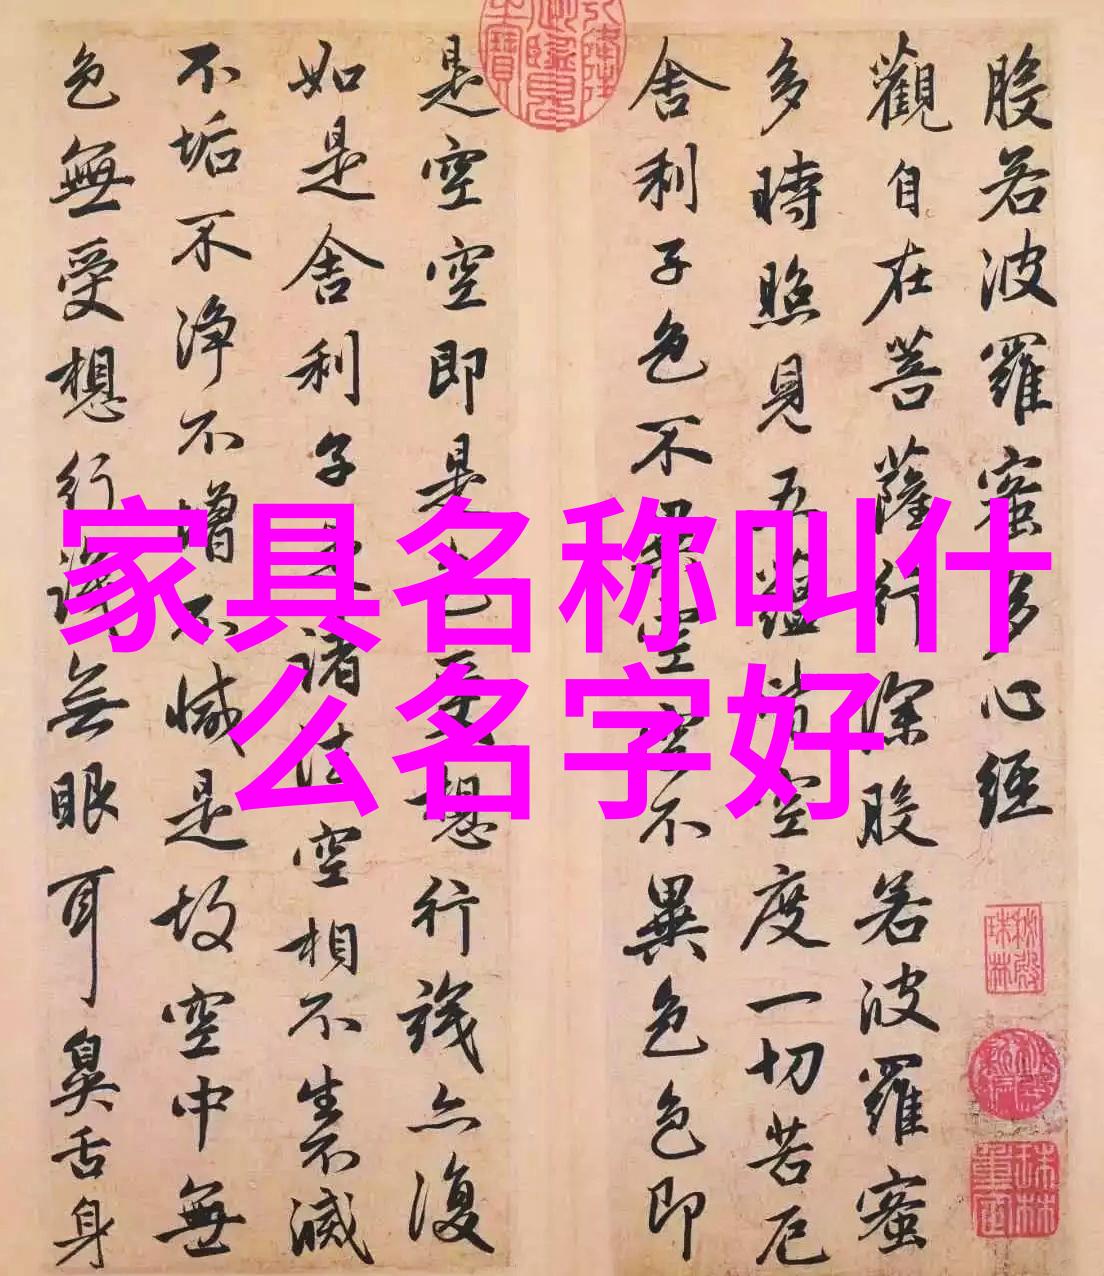 般若波羅蜜多心經
觀自在菩薩行深般若波羅蜜
多時照見五蘊皆空度一切苦厄
舍利子色不異空空不異色色即
是空空即是色受想行識亦復
如是舍利子是諸法空相不生不滅
不垢不净不增不減是故空中無
色無受想行識無眼耳鼻舌身
家具名称叫什
么名字好